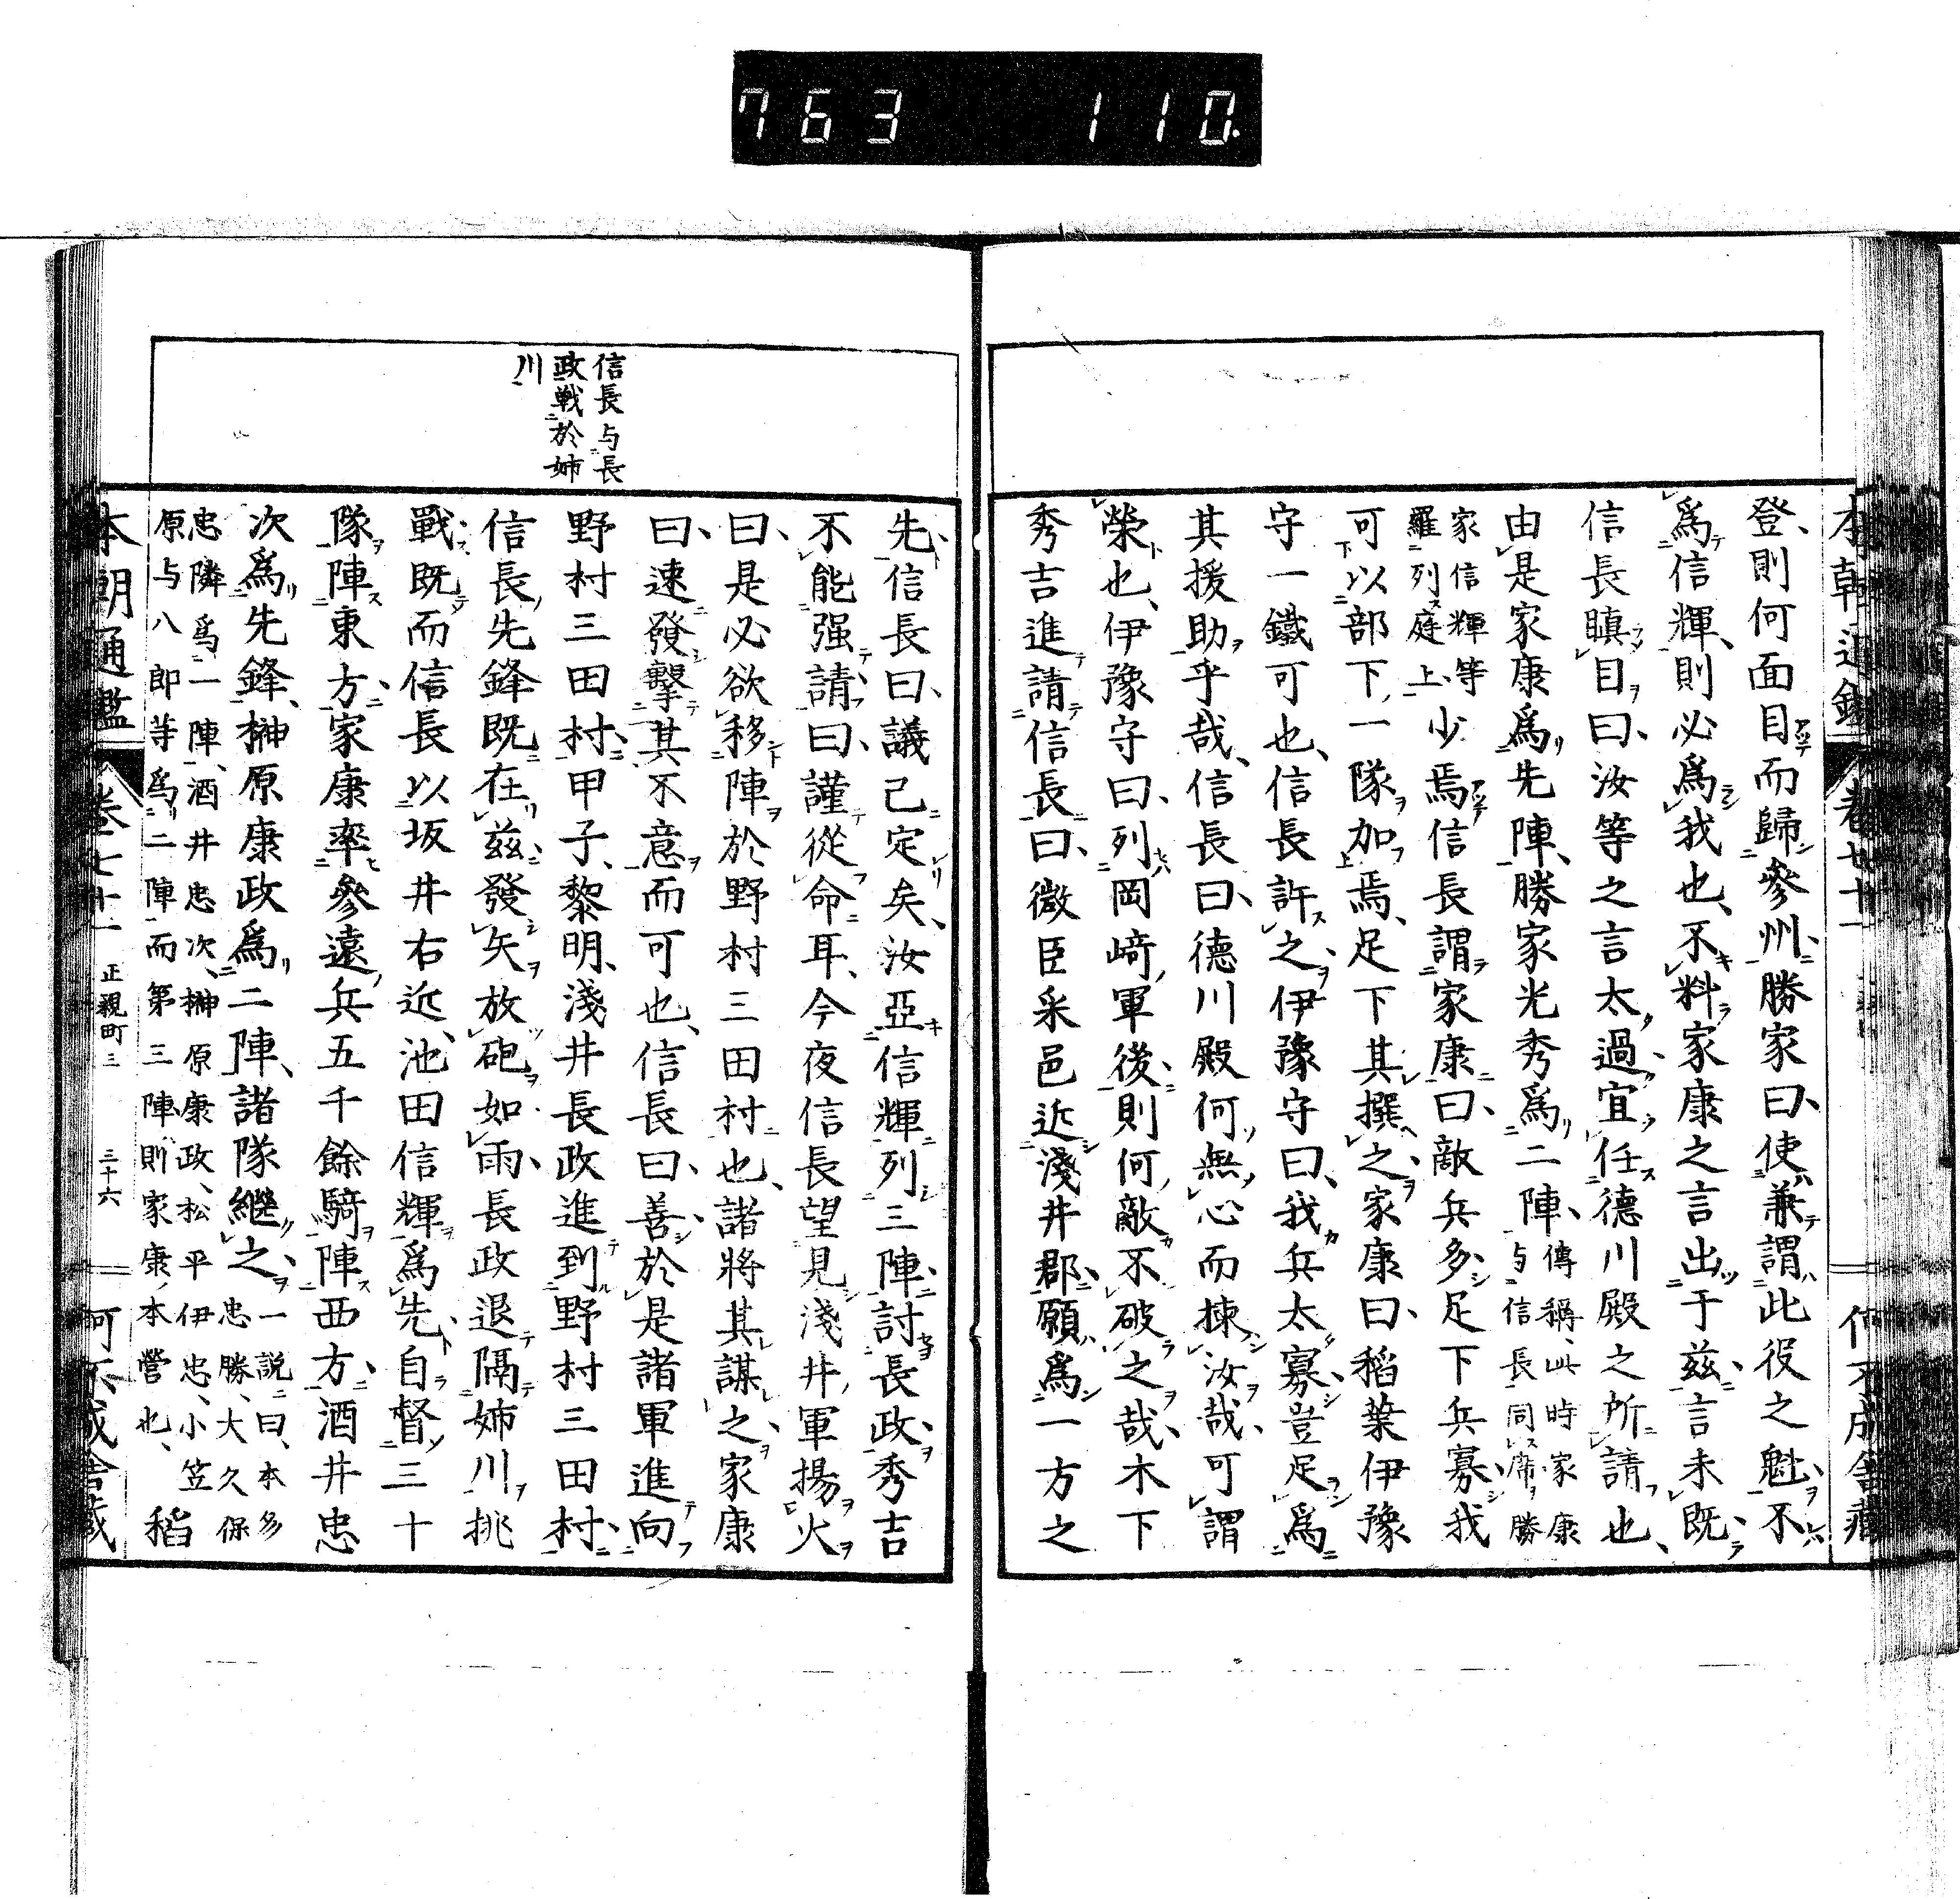 763 110.
本朝通鑑 卷七十一 何不成舍藏
登、則何面目而歸參州、勝家曰、使兼謂此役之魁、不
爲信輝、則必爲我也、不料家康之言出于茲、言未既、
信長瞋目曰、汝等之言太過、宜任德川殿之所請也、
由是家康爲先陣、勝家光秀爲二陣、傳稱、此時家康与信長同席、勝
家信輝等羅列庭上、少焉信長謂家康曰、敵兵多、足下兵寡、我
可以部下一隊加焉、足下其撰之、家康曰、稻葉伊豫
守一鐵可也、信長許之、伊豫守曰、我兵太寡、豈足爲
其援助乎哉、信長曰、德川殿何無心而揀汝哉、可謂
榮也、伊豫守曰、列岡﨑軍後、則何敵不破之哉、木下
秀吉進請信長曰、微臣采邑近淺井郡、願爲一方之
信長与長
政戰於姉
川
先、信長曰、議已定矣、汝亞信輝列三陣、討長政、秀吉
不能强請曰、謹從命耳、今夜信長望見淺井軍揚火
曰、是必欲移陣於野村三田村也、諸將其謀之、家康
曰、速發擊其不意而可也、信長曰、善、於是諸軍進向
野村三田村、甲子、黎明、淺井長政進到野村三田村、
信長先鋒既在茲、發矢放砲如雨、長政退隔姉川挑
戰、既而信長以坂井右近、池田信輝爲先、自督三十
隊陣東方、家康率參遠兵五千餘騎陣西方、酒井忠
次爲先鋒、榊原康政爲二陣、諸隊繼之、一說曰、本多忠勝、大久保
忠隣爲一陣、酒井忠次、榊原康政、松平伊忠、小笠原与八郎等爲二陣、而第三陣則家康本營也、 稻
本朝通鑑 卷七十一 正親町二 三十六 何不成舍藏